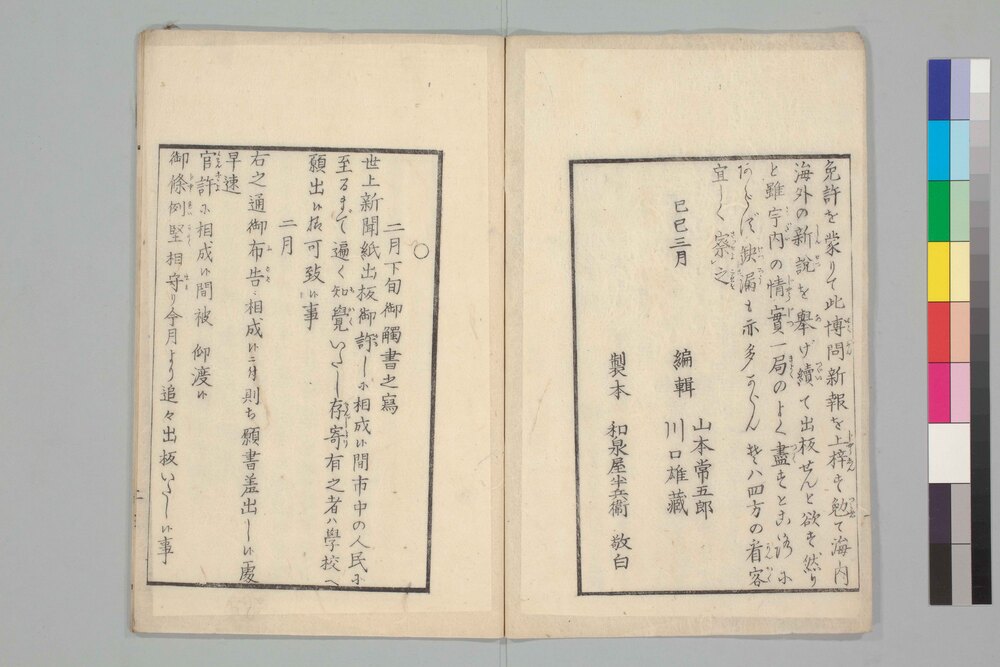 免許を蒙りて此博問新報を上梓す勉て海内
海外の新説を舉げ續て出板せんと欲す然り
と雖宇内の情實一局のよく盡すところに
あらず缺漏も亦多からん是ハ四方の看客
宜しく察之
己巳三月
編輯 山本常五郎
川口雄藏
製本 和泉屋半兵衞 敬白
〇
二月下旬御觸書之寫
世上新聞紙出板御許しに相成候間市中の人民に
至るまで遍く知覺いたし存寄有之者ハ學校へ
願出候樣可致候事
二月
右之通御布告ニ相成候ニ付則ち願書差出し候處
早速
官許に相成候間被 仰渡候
御條例堅相守り今月より追々出板いたし候事